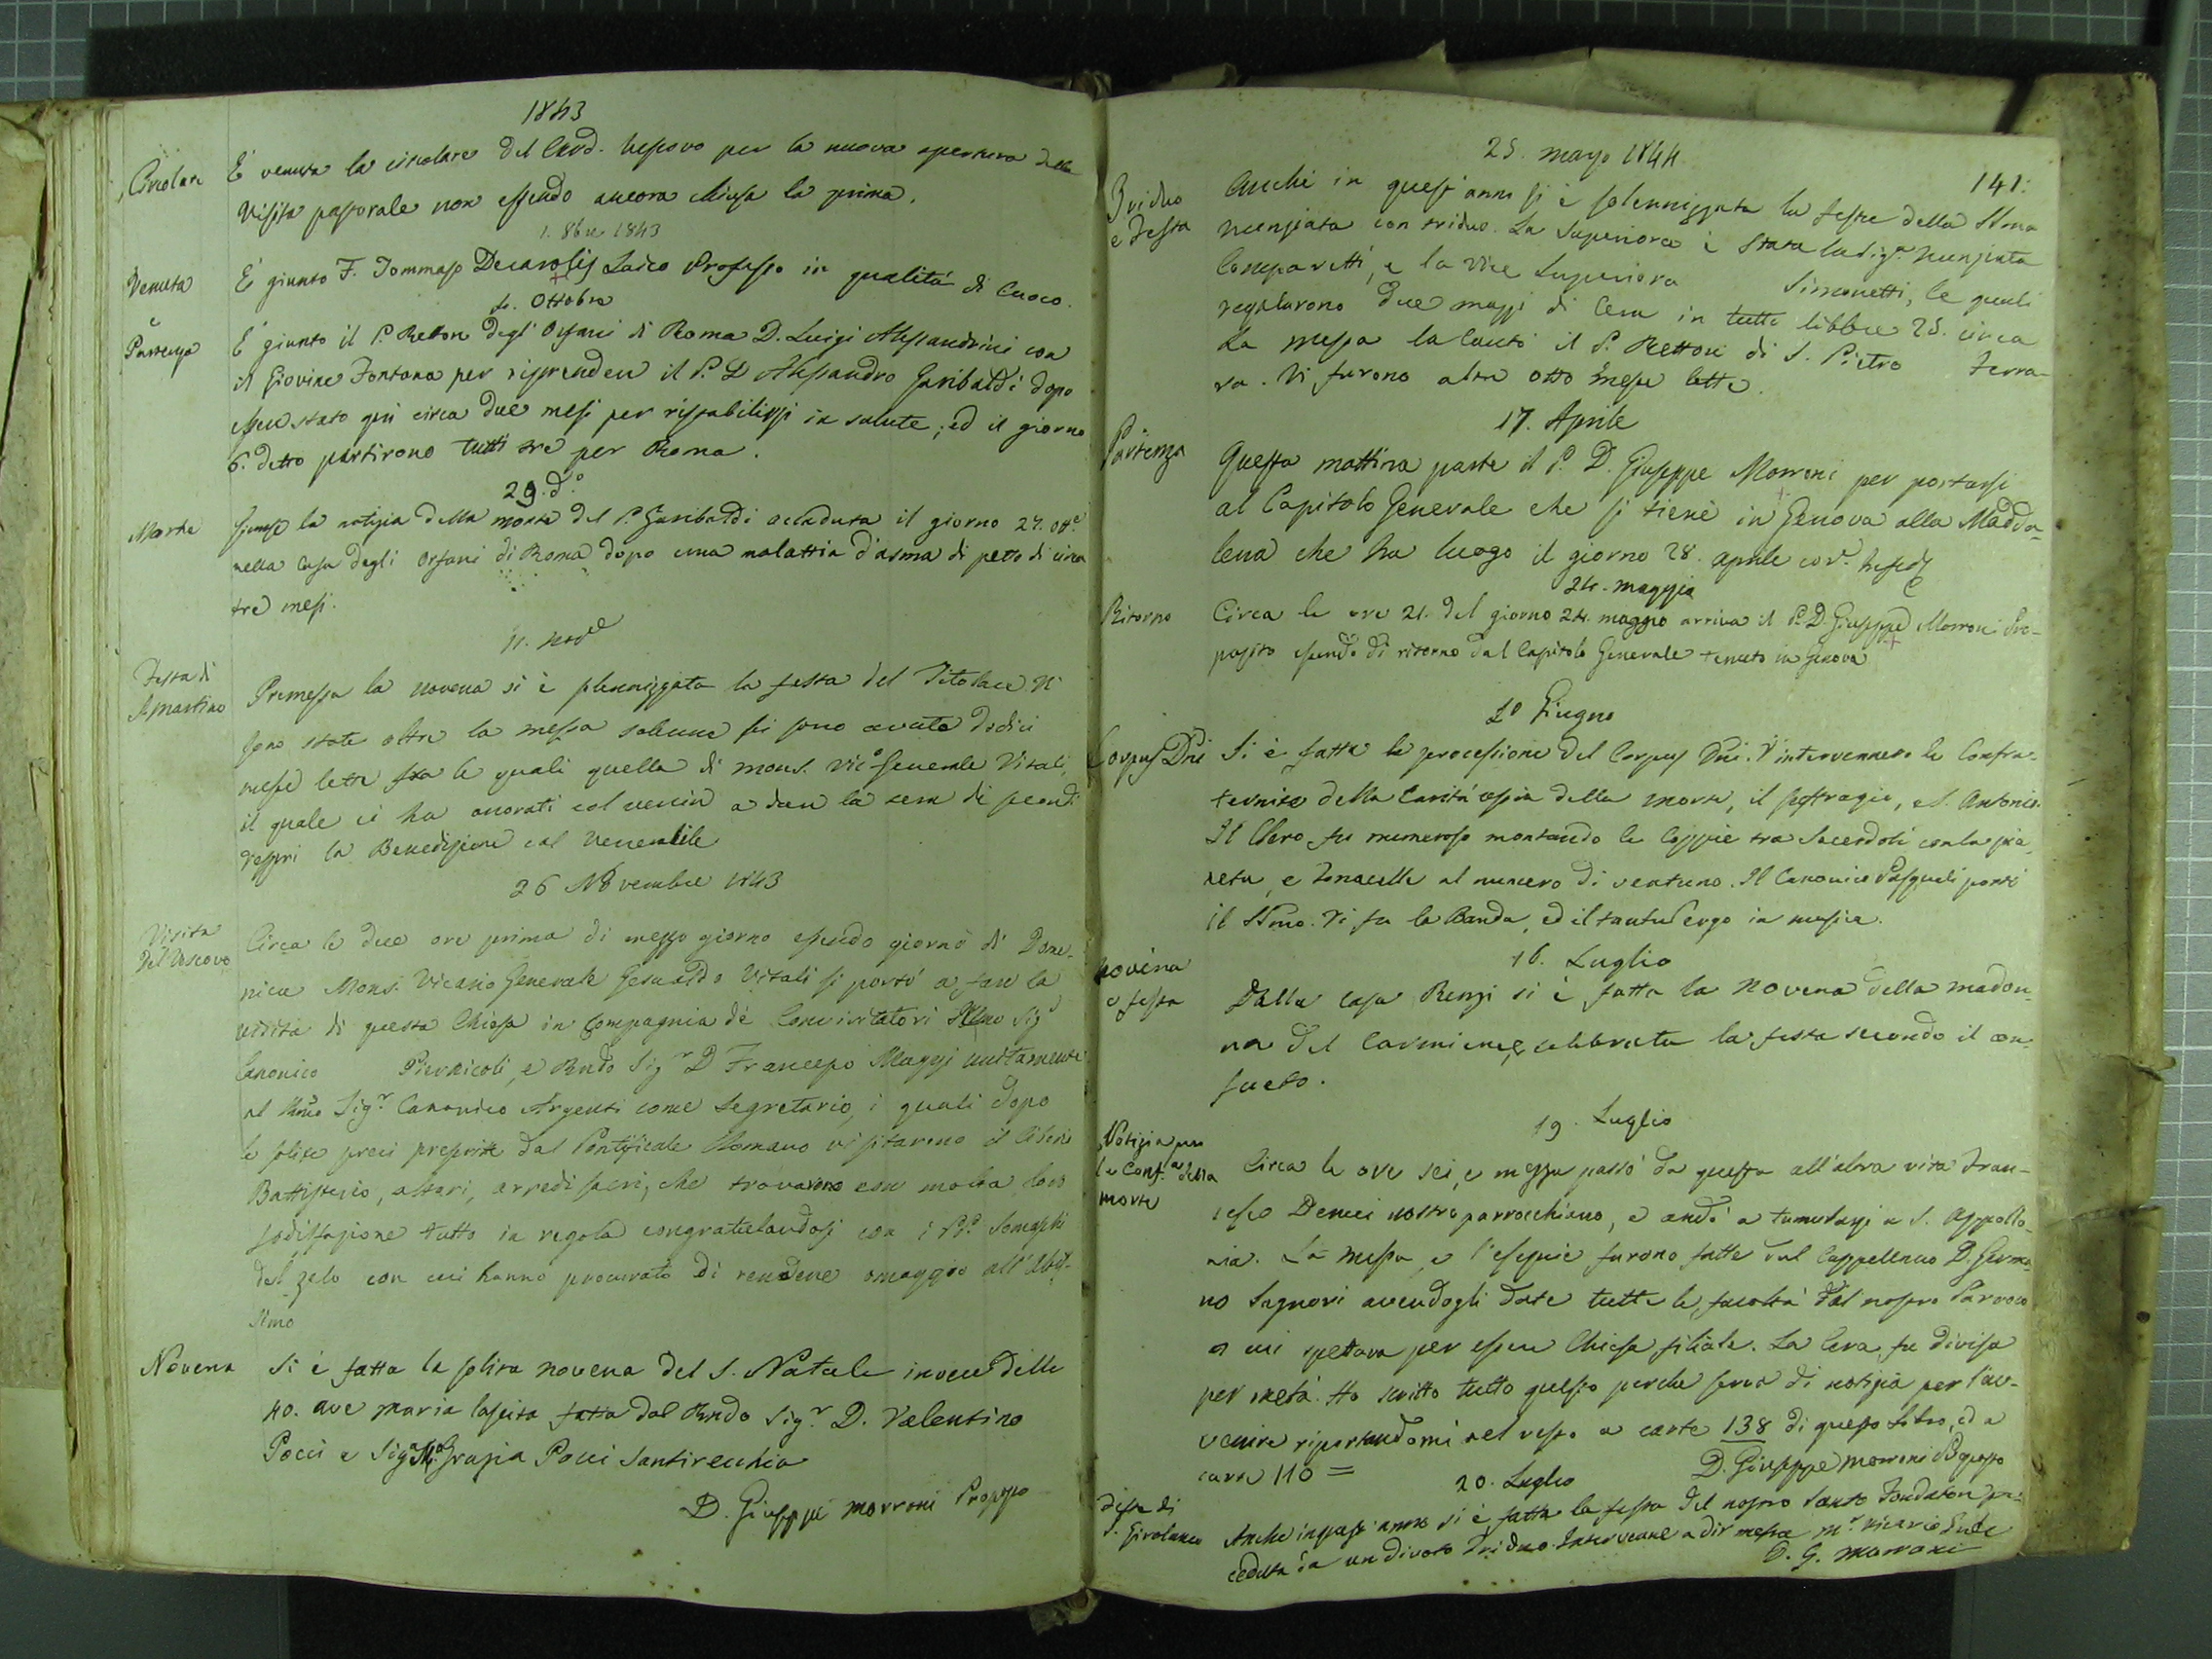 1843
Circolare È venuta la circolare del Card. Vescovo per la nuova apertura della
Visita pastorale non essendo ancora chiusa la prima.
1. 8bre 1843
Venuta È giunto F. Tommaso Decarolis Laico Professo in qualità di Cuoco.
4. Ottobre
Partenza È giunto il P. Rettore degl' Orfani di Roma D. Luigi Alessandrini con
il Giovine Fontana per riprendere il P. D Alessandro Garibaldi dopo
essere stato qui circa due mesi per ristabilirsi in salute; ed il giorno
6. detto partirono tutti tre per Roma.
29. d.o
Morte Giunse la notizia della morte del P. Garibaldi accaduta il giorno 27. Ott.e
nella Casa degli Orfani di Roma dopo una malattia d'asma di petto di circa
tre mesi.
11. Nov.e
Festa di
S. Martino Premessa la novena si è solennizzata la festa del Titolare Vi
sono state oltre la messa solenne si sono avute dodici
messe lette fra le quali quella di Mons. Vic.o Generale Vitali,
il quale ci ha onorati col venire a dare la sera di secondi
vespri la Benedizione col Venerabile
26 Novembre 1843
Visita
del Vescovo Circa le due ore prima di mezzo giorno essendo giorno di Dome-
nica Mons. Vicario Generale Gesualdo Vitali si portò a fare la
visita di questa Chiesa in Compagnia de Convisitatori Illmo Sig.r
Canonico Piervicoli, e Rndo Sig.r D Francesco Maggi unitamente
al Rmo Sig.r Canonico Argenti come Segretario, i quali dopo
le solite preci prescritte dal Pontificale Romano visitarono il Ciborio
Battisterio, altari, arredi sacri, che trovarono con molta loro
sodisfazione tutto in regola congratulandosi con i PP. Somaschi
del zelo con cui hanno procurato di rendere omaggio all' Altis-
simo
Novena Si è fatta la solita novena del S. Natale invece delle
40. ave maria lascita fatta dal Rndo Sig.r D. Valentino
Pocci e Sig.a M.a Grazia Pocci Santirecchia
D. Giuseppe Morroni Proposto
25. Marzo 1844
141.
Triduo
e Festa Anche in quest'anno si è solennizzata la festa della SSma
Nunziata con triduo. La Superiora è stata la Sig.a Nunziata
Comparetti, e la Vice Superiora Simonetti, le quali
regalarono due mazzi di Cera in tutte libbre 25. circa
La messa la cantò il P. Rettore di S. Pietro Ferra-
ra. Vi furono altre otto messe lette.
17. Aprile
Partenza Questa mattina parte il P. D. Giuseppe Morroni per portarsi
al Capitolo Generale che si tiene in Genova alla Madda-
lena che ha luogo il giorno 28. aprile cor.e
24. Maggio
Ritorno Circa le ore 21. del giorno 24. maggio arriva il P. D. Giuseppe Morroni Pro-
posito essendo di ritorno dal Capitolo Generale tenuto in Genova
2º Giugno
Corpus Dni Si è fatta la processione del Corpus Dni. V'intervennero le Confra-
ternite della Carità ossia della morte, il suffragio, e S. Antonio.
Il Clero fu numeroso montando le Coppie tra Sacerdoti con la pia-
neta, e Tonacelle al numero di ventuno. Il Canonico Pasquali portò
il SSmo. Vi fu la Banda, ed il tantum ergo in musica.
16. Luglio
Novena
e festa Dalla casa Renzi si è fatta la Novena della madon-
na del Carmine, e celebrata la festa secondo il con-
sueto.
19. Luglio
Notizia per
la Conf.a della
morte Circa le ore sei, e mezza passò da questa all'altra vita Fran-
cesco Denci nostro parrocchiano, e andò a tumularsi a S. Appollo-
nia. La messa, e l'esequie furono fatte dal Cappellano D. Germa-
no Signori avendogli date tutte le facoltà dal nostro Parroco
a cui spettava per essere Chiesa filiale. La Cera fu divisa
per metà. Ho scritto tutto questo perche serva di notizia per l'av-
venire riportandomi nel resto a carte 138 di questo Libro, ed a
carta 110 = D. Giuseppe Morroni Proposto
20. Luglio
Festa di
S. Girolamo Anche in quest'anno si è fatta la festa del nostro Santo Fondatore pre-
ceduta da un divoto Triduo. Intervenne a dir messa M.r Vicario Gnle
D. G. Morroni